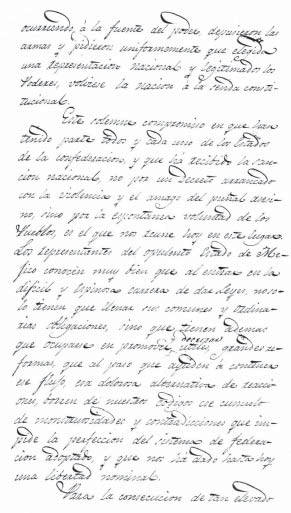 ocurriendo á la fuente del poder, depusieron las
armas y pidieron uniformemente que elegida
una representacion nacional y legitimados los
Poderes, volviese la nacion á la senda consti-
tucional.
Este solemne compromiso en que han
tenido parte todos y cada uno de los Estados
de la confederacion, y que ha recibido la san-
cion nacional, no por un Decreto arrancado
con la violencia y el amago del puñal asesi-
no, sino por la espontanea voluntad de los
Pueblos, es el que nos reune hoy en este lugar.
Los representantes del opulento Estado de Me-
jico conocen muy bien que al entrar en la
dificil y espinosa carrera de dar leyes, no so-
lo tienen que llenar sus comunes y ordina-
rias obligaciones, sino que tienen ademas
que ocuparse en promover utiles, y grandes re-
formas, que al paso que ayuden á contener
ese flujo, esa dolorosa alternativa de reaccio-
nes, borren de nuestros codigos ese cumulo
de monstruosidades y contradicciones que im-
pide la perfeccion del sistema de federa-
cion adoptado, y que nos ha dado hasta hoy
una libertad nominal.
Para la consecucion de tan elevado